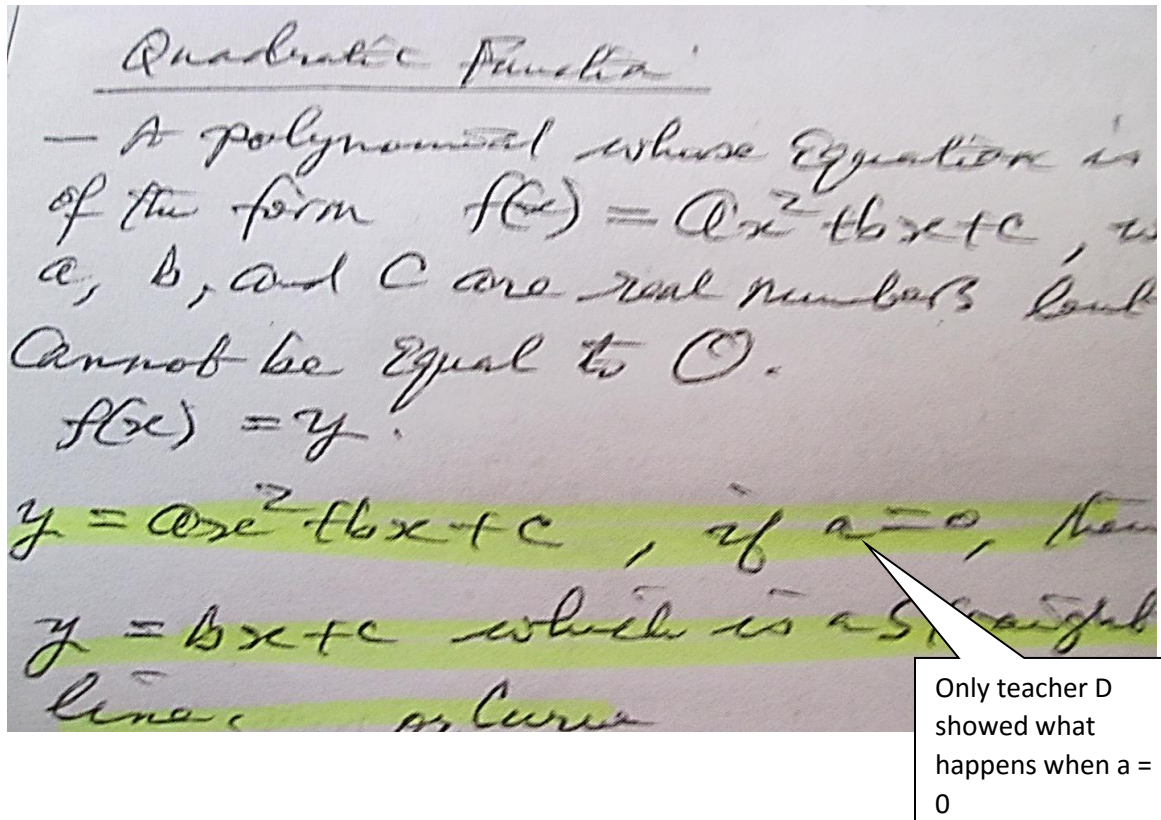 Quadratic Function
— A polynomial whose Equation is
of the form f(x) = ax² + bx + c, w
a, b, and c are real numbers but
Cannot be Equal to 0.
f(x) = y.
y = ax² + bx + c, if a = 0, then
y = bx + c which is a straight
line. or Curve
Only teacher D
showed what
happens when a =
0